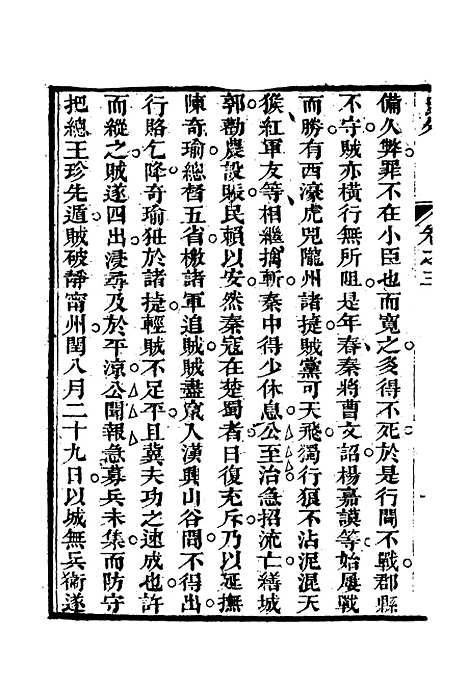 卷之三
備久弊罪不在小臣也而寬之多得不死於是行間不戰郡縣
不守賊亦橫行無所阻是年春秦將曹文詔楊嘉謨等始屢戰
而勝有西濠虎兕隴州諸捷賊黨可天飛獨行狼不沾泥混天
猴紅軍友等相繼擒斬秦中得少休息公至治急招流亡繕城
郭勸農設賑民賴以安然秦寇在楚蜀者日復充斥乃以延撫
陳奇瑜總督五省檄諸軍追賊賊盡竄入漢興山谷間不得出
行賂乞降奇瑜狃於諸捷輕賊不足平且冀夫功之速成也許
而縱之賊遂四出浸尋及於平涼公聞報急募兵未集而防守
把總王珍先遁賊破靜甯州閏八月二十九日以城無兵衞遂